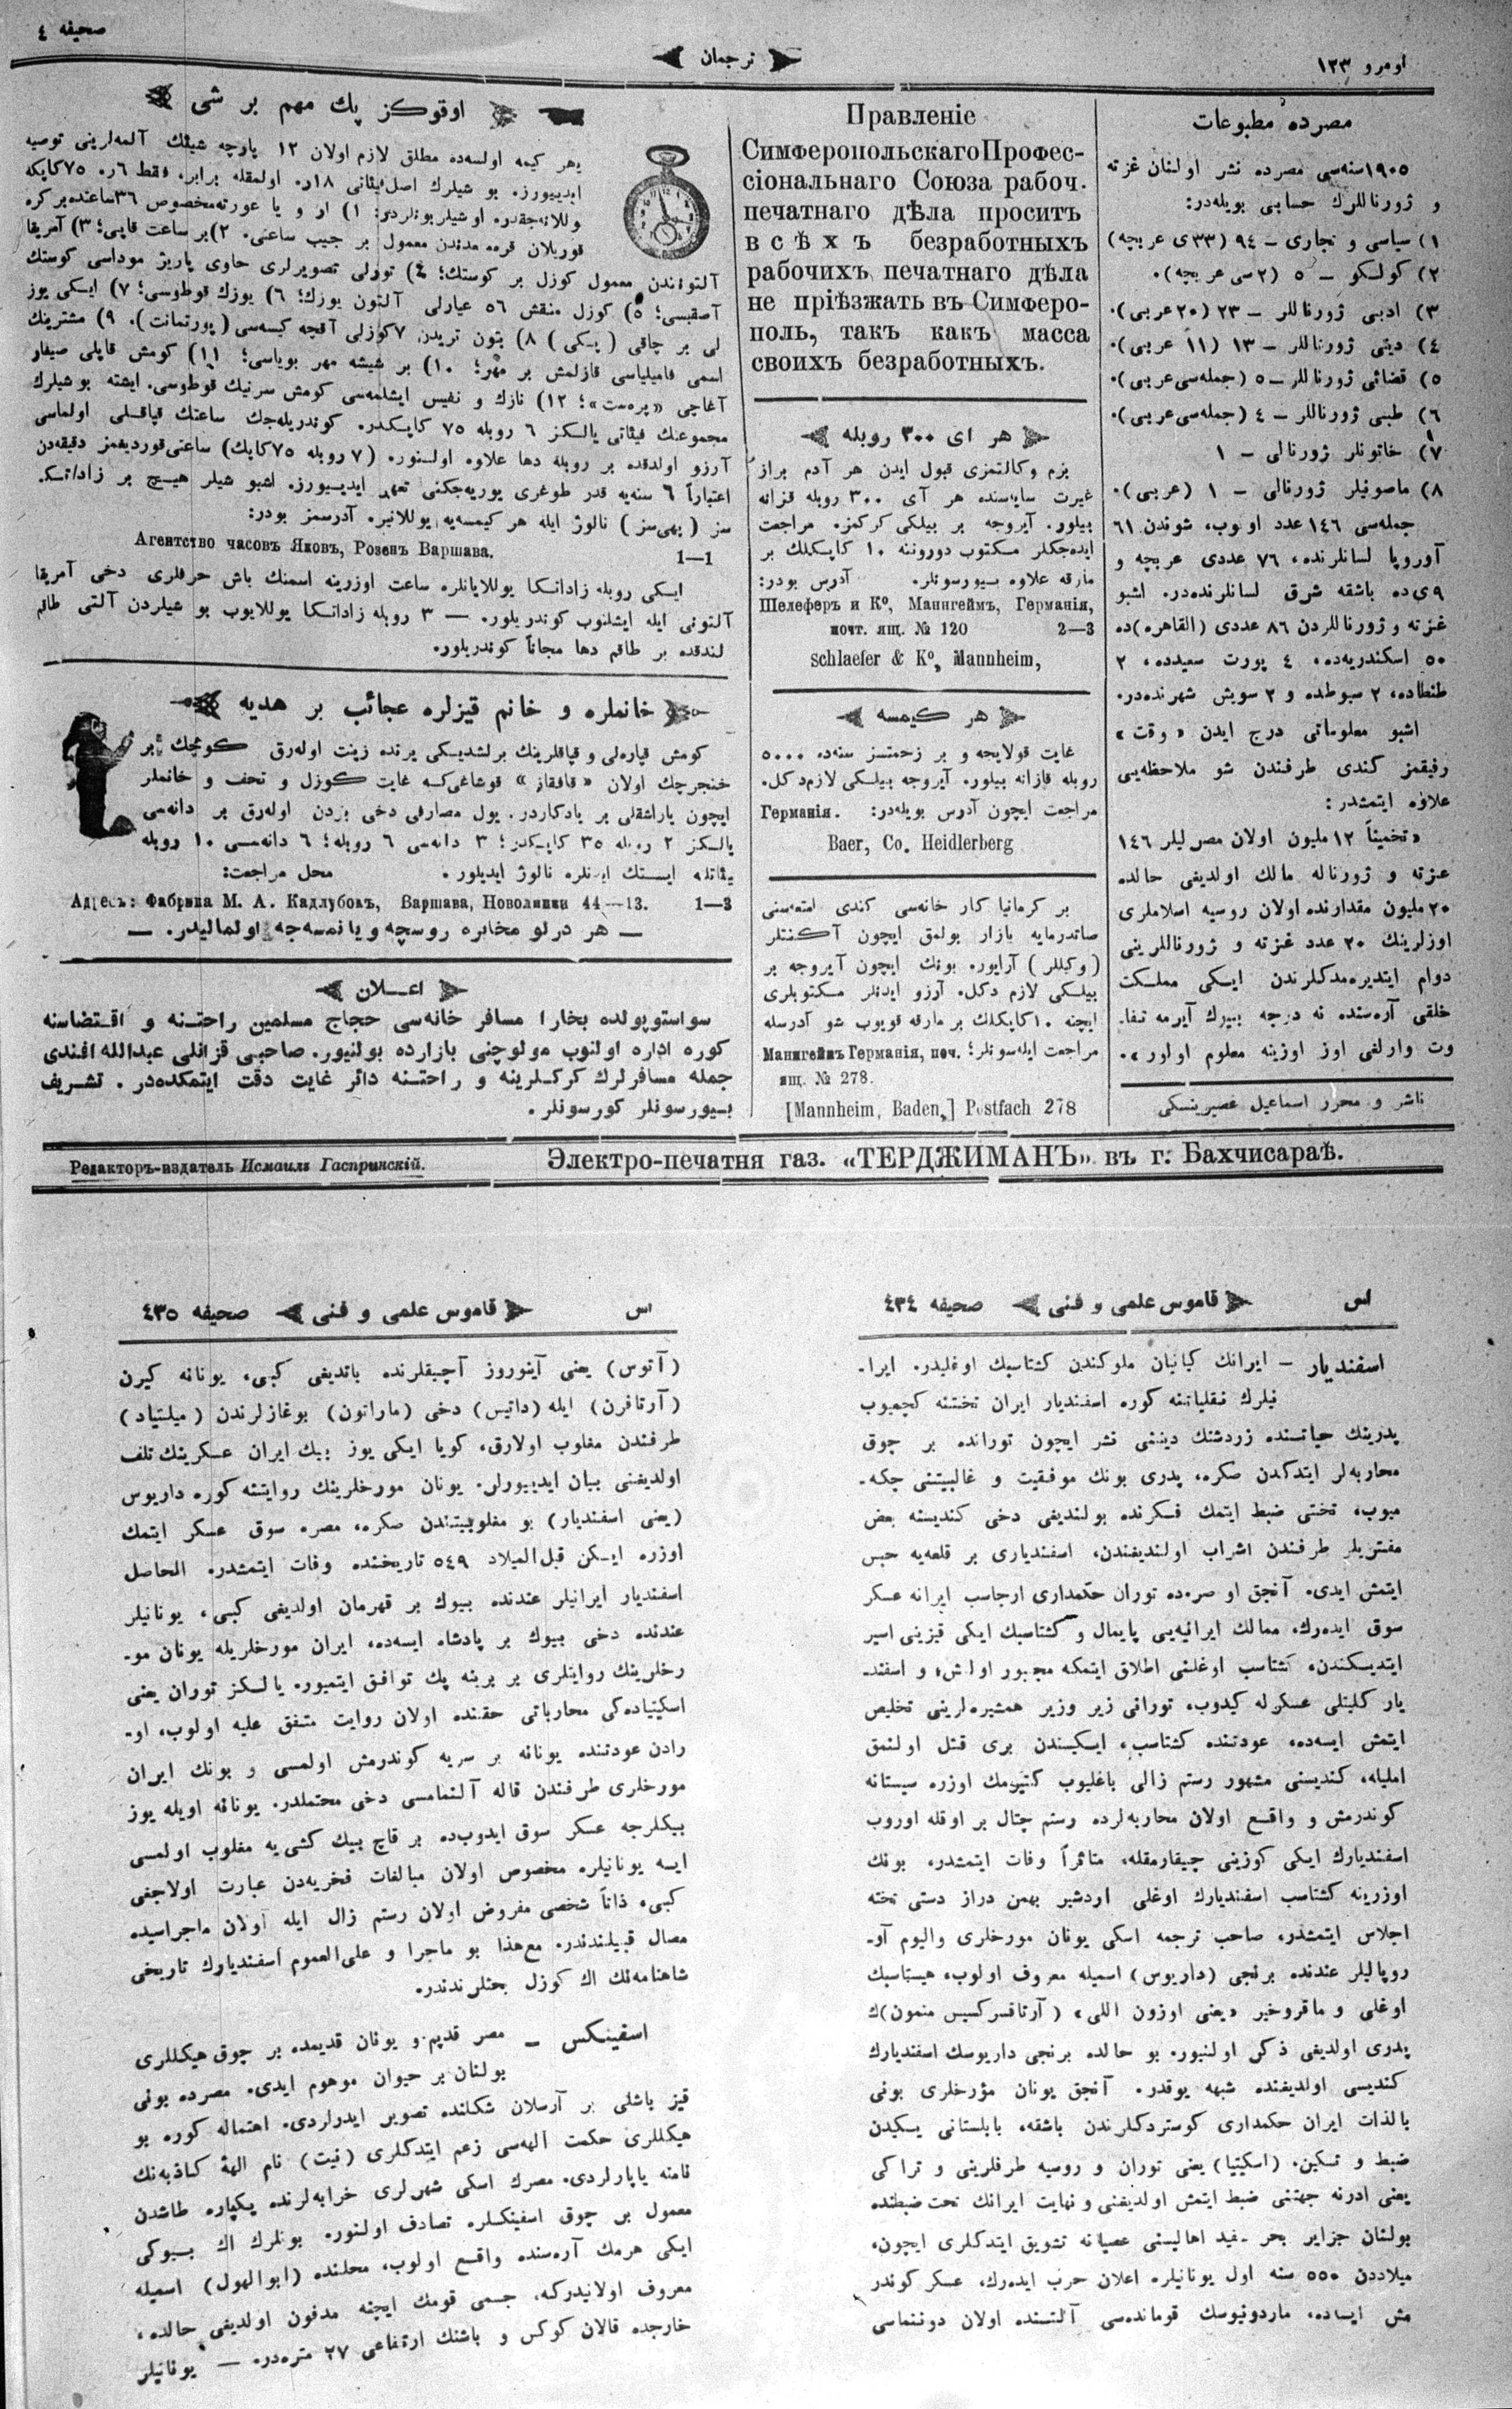 اومرو ١٢٣
ترجمان
صحيفه ٤
مصرده مطبوعات
١٩٠٥سنه‌سی مصرده نشر اولنان غزته
و ژورناللرك حسابی بویله‌در:
١) سیاسی و تجاری – ٩٤ (٣٣ی عربچه)
٢) كولكو – ٥ (٢سی عربچه).
٣) ادبی ژورناللر – ٢٣ (٢٠عربی).
٤) دینی ژورناللر – ١٣ (١١ عربی).
٥) قضائی ژورناللر – ٥ (جمله‌سی عربی).
٦) طبی ژورناللر – ٤ (جمله‌سی عربی).
٧) خاتونلر ژورنالی – ١
٨) ماصونیلر ژورنالی – ١ (عربی).
جمله‌سی ١٤٦ عدد اولوب، شوندن ٦١
آوروپا لسانلرنده، ٧٦ عددی عربچه و
٩ی‌ده باشقه شرق لسانلرنده‌در. اشبو
غزته و ژورناللردن ٨٦ عددی (القاهره)ده
٥٠ اسكندریه‌ده، ٤ پورت سعیدده، ٢
طنطاده، ٢ سیوطده و ٢ سویش شهرنده‌در.
اشبو معلوماتی درج ایدن «وقت»
رفیقمز كندی طرفندن شو ملاحظه‌یی
علاوه ایتمشدر:
«تخمیناً ١٢ ملیون اولان مصرلیلر ١٤٦
غزته و ژورناله مالك اولدیغی حالده
٢٠ ملیون مقدارنده اولان روسیه اسلاملری
اوزلرینك ٢٠ عدد غزته و ژورناللرینی
دوام ایتدیره‌مدكلرندن ایكی مملكت
خلقی آره‌سنده نه درجه بیوك آیرمه تفا-
وت وارلغی اوز اوزینه معلوم اولور».
ناشر و محرر اسماعیل غصپرینسكی
Правленіе
Симферопольскаго Профес-
сіональнаго Союза рабоч.
печатнаго дѣла проситъ
всѣхъ безработныхъ
рабочихъ печатнаго дѣла
не пріѣзжать въ Симферо-
поль, такъ какъ масса
своихъ безработныхъ.
هر ای ٣٠٠ روبله
بزم وكالتمزی قبول ایدن هر آدم براز
غیرت سایه‌سنده هر آی ٣٠٠ روبله قزانه
بیلور. آیروجه بر بیلكی كركمز. مراجعت
ایده‌جكلر مكتوب دوروننه ١٠ كاپكلك بر
مارقه علاوه بیورسونلر. آدرس بودر:
Шелеферъ и Ко, Мангеймъ, Германія,
почт. ящ. № 120 2—3
Schlaefer & Ko, Mannheim,
هر كیمسه
غایت قولایجه و بر زحمتسز سنه‌ده ٥٠٠٠
روبله قازانه بیلور. آیروجه بیلكی لازم‌دكل.
مراجعت ایچون آدرس بویله‌در: Германія.
Baer, Co. Heidlerberg
بر كرمانیا كار خانه‌سی كندی امتعه‌سنی
صاتدرمایه بازار بولمق ایچون آكنتلر
(وكیللر) آرایور. بونك ایچون آیروجه بر
بیلكی لازم دكل. آرزو ایدنلر مكتوبلری
ایچنه ١٠كاپكلك بر مارقه قویوب شو آدرسله
مراجعت ایله‌سونلر؛ Маннгеймъ Германія, поч.
ящ. № 278.
[Mannheim, Baden,] Postfach 278
اوقوكز پك مهم بر شی
یهر كیمه اولسه‌ده مطلق لازم اولان ١٢ پارچه شیئك آلمه‌لرینی توصیه
قوریلان قرمه معدندن معمول بر جیب ساعتی. ٢)بر ساعت قاپی؛ ٣) آمریقا
آلتونندن معمول كوزل بر كوستك؛ ٤) تورلی تصویرلری حاوی پاریژ موداسی كوستك
آصقیسی؛ ٥) كوزل منقش ٥٦ عیارلی آلتون یوزك؛ ٦) یوزك قوطوسی؛ ٧) ایكی یوز
لی بر چاقی (پكی) ٨) بتون تریدن ٧كوزلی آقچه كیسه‌سی (پورتمانت). ٩) مشترینك
اسمی فامیلیاسی قازلمش بر مهر؛ ١٠) بر شیشه مهر بویاسی؛ ١١) كومش قاپلی صیغار
آغاچی ١٢) نازك و نفیس ایشلمه‌سی كومش سرنیك قوطوسی. ایشته بو شیلرك
مجموعنك فیئاتی یالكز ٦ روبله ٧٥ كاپكدر. كوندریله‌جك ساعتك قپاقلی اولماسی
آرزو اولدقده بر روبله دها علاوه اولنور. (٧ روبله ٧٥كاپك) ساعتی‌قوردیغمز دقیقه‌دن
اعتباراً ٦ سنه‌یه قدر طوغری یوریه‌جكنی تعهد ایدییورز. اشبو شیلر هیچ بر زاداتكا-
سز (بهی‌سز) نالوژ ایله هر كیمسه‌یه یوللانیر. آدرسمز بودر:
Агентство часовъ Яковъ, Розенъ Варшава. 1—1
ایكی روبله زاداتكا یوللایانلره ساعت اوزرینه اسمنك باش حرفلری دخی آمریقا
آلتونی ایله ایشلنوب كوندریلور. — ٣ روبله زاداتكا یوللایوب بو شیلردن آلتی طاقم
لندقده بر طاقم دها مجاناً كوندریلور.
خانملره و خانم قیزلره عجائب بر هدیه
كومش قپاره‌لی و قپاقلرینك برلشدیكی یرنده زینت اوله‌رق كوچك بر
خنجرچك اولان «قافقاز» قوشاغی‌كه غایت كوزل و تحف و خانملر
ایچون یاراشقلی بر یادكاردر. یول مصارفی دخی بزدن اوله‌رق بر دانه‌سی
یالكز ٢ روبله ٣٥ كاپكدر؛ ٣ دانه‌سی ٦ روبله؛ ٦ دانه‌سی ١٠ روبله
ایستك ایدنلره نالوژ ایدیلور. محل مراجعت:
Адресъ: Фабрика М. А. Кадлубокъ, Варшава, Новолипки 44—13. 1—3
— هر درلو مخابره روسچه و یا نمسه‌جه اولمالیدر. —
اعلان
سواستوپولده بخارا مسافر خانه‌سی حجاج مسلمین راحتنه و اقتضاسنه
كوره اداره اولنوب مولوچنی بازارده بولنیور. صاحبی قزانلی عبدالله افندی
جمله مسافرلرك كركلرینه و راحتنه دائر غایت دقت ایتمكده‌در. تشریف
بیورسونلر كورسونلر.
Редакторъ-издатель Исмаилъ Гаспринскій.
Электро-печатня газ. «ТЕРДЖИМАНЪ» въ г. Бахчисараѣ.
اس
قاموس علمی و فنی
صحیفه ٤٣٤
اسفندیار – ایرانك كیانیان ملوكندن كشتاسبك اوغلیدر. ایرا-
نیلرك نقلیاتنه كوره اسفندیار ایران تختنه كچمیوب
پدرینك حیاتنده زردشتك دیننی نشر ایچون تورانده بر چوق
محاربه‌لر ایتدكدن صكره، پدری بونك موفقیت و غالبیتنی چكه-
میوب، تختی ضبط ایتمك فكرنده بولندیغی دخی كندیسنه بعض
مفتریلر طرفندن اشراب اولندیغندن، اسفندیاری بر قلعه‌یه حبس
ایتمش ایدی. آنجق او صره‌ده توران حكمداری ارجاسب ایرانه عسكر
سوق ایده‌رك، ممالك ایرانیه‌یی پایمال و كشتاسبك ایكی قیزینی اسیر
ایتدیكندن، كشتاسب اوغلنی اطلاق ایتمكه مجبور اولمش، و اسفند-
یار كلیتلی عسكرله كیدوب، تورانی زیر وزبر همشیره‌لرینی تخلیص
ایتمش ایسه‌ده، عودتنده كشتاسب، ایكیسندن بری قتل اولنمق
املیله، كندیسنی مشهور رستم زالی باغلیوب كتیرمك اوزره سیستانه
كوندرمش و واقع اولان محاربه‌لرده رستم چتال بر اوقله اوروب
اسفندیارك ایكی كوزینی چیقارمقله، متاثراً وفات ایتمشدر، بونك
اوزرینه كشتاسب اسفندیارك اوغلی اردشیر بهمن دراز دستی تخته
اجلاس ایتمشدر، صاحب ترجمه اسكی یونان مورخلری والیوم آو-
روپالیلر عندنده برنجی (داریوس) اسمیله معروف اولوب، هیستاسبك
اوغلی و ماقروخیر «یعنی اوزون اللی» (آرتاقسركسیس منمون)ك
پدری اولدیغی ذكر اولنیور. بو حالده برنجی داریوسك اسفندیارك
كندیسی اولدیغنده شبهه یوقدر. آنجق یونان مؤرخلری بونی
بالذات ایران حكمداری كوستردكلرندن باشقه، بابلستانی یكیدن
ضبط و تسكین. (اسكیتیا) یعنی توران و روسیه طرفلرینی و تراكی
یعنی ادرنه جهتنی ضبط ایتمش اولدیغنی و نهایت ایرانك تحت ضبطنده
بولنان جزایر بحر سفید اهالیسنی عصیانه تشویق ایتدكلری ایچون،
میلاددن ٥٥٠ سنه اول یونانیلره اعلان حرب ایده‌رك، عسكر كوندر
مش ایسه‌ده، ماردونیوسك قومانده‌سی آلتنده اولان دوننماسی
اس
قاموس علمی و فنی
صحیفه ٤٣٥
(آتوس) یعنی آینوروز آچیقلرنده باتدیغی كبی، یونانه كیرن
(آرتافرن) ایله (داتیس) دخی (ماراتون) بوغازلرندن (میلتیاد)
طرفندن مغلوب اولارق، كویا ایكی یوز بیك ایران عسكرینك تلف
اولدیغنی بیان ایدییورلر. یونان مورخلرینك روایتنه كوره داریوس
(یعنی اسفندیار) بو مغلوبیتندن صكره، مصره سوق عسكر ایتمك
اوزره ایكن قبل‌المیلاد ٥٤٩ تاریخنده وفات ایتمشدر. الحاصل
اسفندیار ایرانیلر عندنده بیوك بر قهرمان اولدیغی كبی، یونانیلر
عندنده دخی بیوك بر پادشاه ایسه‌ده، ایران مورخلریله یونان مو-
رخلرینك روایتلری بر برینه پك توافق ایتمیور. یالكز توران یعنی
اسكیتیاده‌كی محارباتی حقنده اولان روایت متفق علیه اولوب، او-
رادن عودتنده یونانه بر سریه كوندرمش اولمسی و بونك ایران
مورخلری طرفندن قاله آلنمامسی دخی محتملدر. یونانه اویله یوز
بیكلرجه عسكر سوق ایدوب‌ده بر قاچ بیك كشی‌یه مغلوب اولمسی
ایسه یونانیلره مخصوص اولان مبالغات فخریه‌دن عبارت اولاجغی
كبی، ذاتاً شخصی مفروض اولان رستم زال ایله اولان ماجراسیده
مصال قبیلندندر. مع‌هذا بو ماجرا و علی‌العموم اسفندیارك تاریخی
شاهنامه‌نك اك كوزل بحثلرندندر.
اسفینكس – مصر قدیم و یونان قدیمده بر چوق هیكللری
بولنان بر حیوان موهوم ایدی. مصرده بونی
قیز باشلی بر آرسلان شكلنده تصویر ایدرلردی. احتماله كوره بو
هیكللری حكمت الهه‌سی زعم ایتدكلری (نیت) نام الهۀ كاذبه‌نك
نامنه یاپارلردی. مصرك اسكی شهرلری خرابه‌لرنده یكپاره طاشدن
معمول بر چوق اسفینكسلره تصادف اولنور. بونلرك اك بیوكی
ایكی هرمك آره‌سنده واقع اولوب، محلنده (ابوالهول) اسمیله
معروف اولانیدركه، جسمی قومك ایچنه مدفون اولدیغی حالده،
خارجده قالان كوكس و باشنك ارتفاعی ٢٧ متره‌در. — یونانیلر